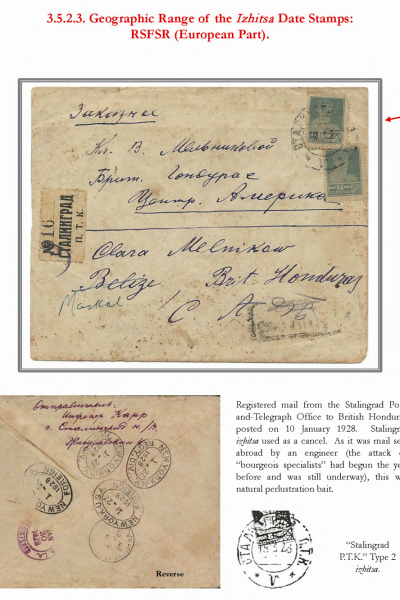 3.5.2.3. Geographic Range of the Izhitsa Date Stamps:
RSFSR (European Part).
Заказное
Кл. В. Мельниковой
Брит. Гондурас
Центр. Америка
№ 16
СТАЛИНГРАД
П. Т. К.
Clara Melnikow
Belize Brit. Honduras
C. A
Registered mail from the Stalingrad Po
and-Telegraph Office to British Hondur
posted on 10 January 1928. Stalingr
izhitsa used as a cancel. As it was mail se
abroad by an engineer (the attack o
“bourgeois specialists” had begun the ye
before and was still underway), this w
natural perlustration bait.
Отправитель:
Карр
г. Сталинград н/В.
NEW YORK
1928
FOREIGN
Reverse
“Stalingrad
P.T.K.” Type 2
izhitsa.